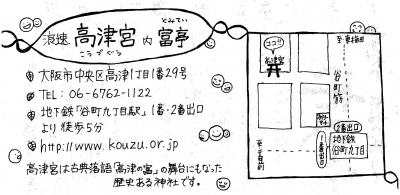 浪速 高津宮 内 富亭
こうづぐう
とみてい
大阪市中央区高津1丁目1番29号
TEL: 06-6762-1122
地下鉄「谷町九丁目駅」1番・2番出口
より徒歩5分
http://www.kouzu.or.jp
高津宮は古典落語「高津の富」の舞台にもなった
歴史ある神社です。
ココ!!
高津宮
谷町筋
2番出口
1番出口
地下鉄
谷町九丁目